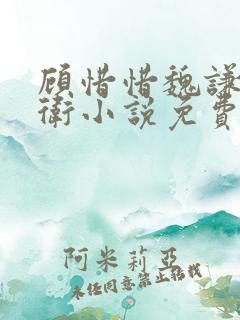 顾惜惜魏谦
衛小说免费
阿米莉亚
未经同意禁止转载